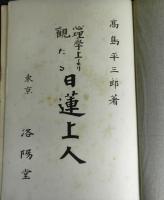 高島平三郎著
心理學上より
觀たる
日蓮上人
東京
洛陽堂